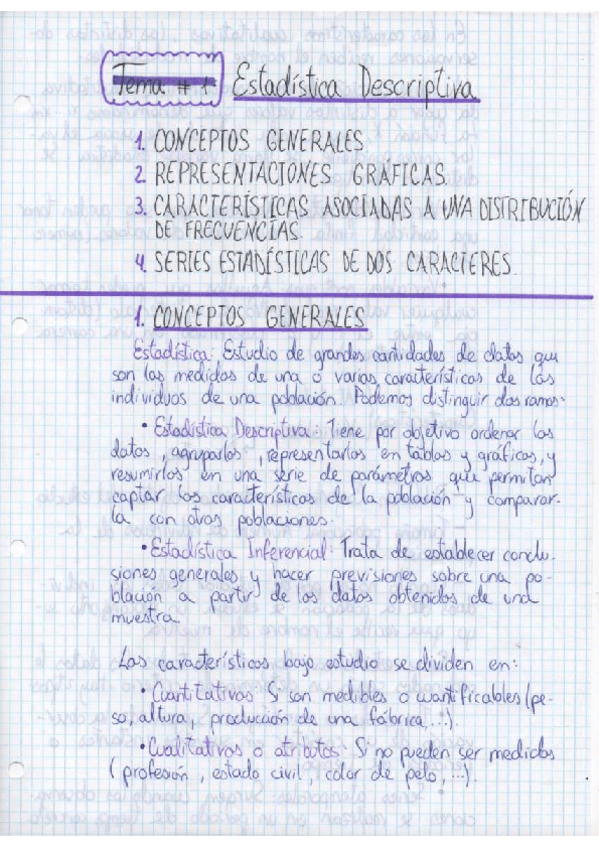 Tema # 1 Estadística Descriptiva
1. CONCEPTOS GENERALES
2. REPRESENTACIONES GRÁFICAS.
3. CARACTERÍSTICAS ASOCIADAS A UNA DISTRIBUCIÓN
DE FRECUENCIAS.
4. SERIES ESTADÍSTICAS DE DOS CARACTERES.
1. CONCEPTOS GENERALES
Estadística: Estudio de grandes cantidades de datos que
son las medidas de una o varias características de los
individuos de una población. Podemos distinguir dos ramas:
• Estadística Descriptiva: Tiene por objetivo ordenar los
datos, agruparlos, representarlos en tablas y gráficas, y
resumirlos en una serie de parámetros que permitan
captar las características de la población y comparar-
la con otras poblaciones.
• Estadística Inferencial: Trata de establecer conclu-
siones generales y hacer previsiones sobre una po-
blación a partir de los datos obtenidos de una
muestra.
Las características bajo estudio se dividen en:
• Cuantitativas: Si son medibles o cuantificables (pe-
so, altura, producción de una fábrica, ...).
• Cualitativas o atributos: Si no pueden ser medidas
(profesión, estado civil, color de pelo, ...).